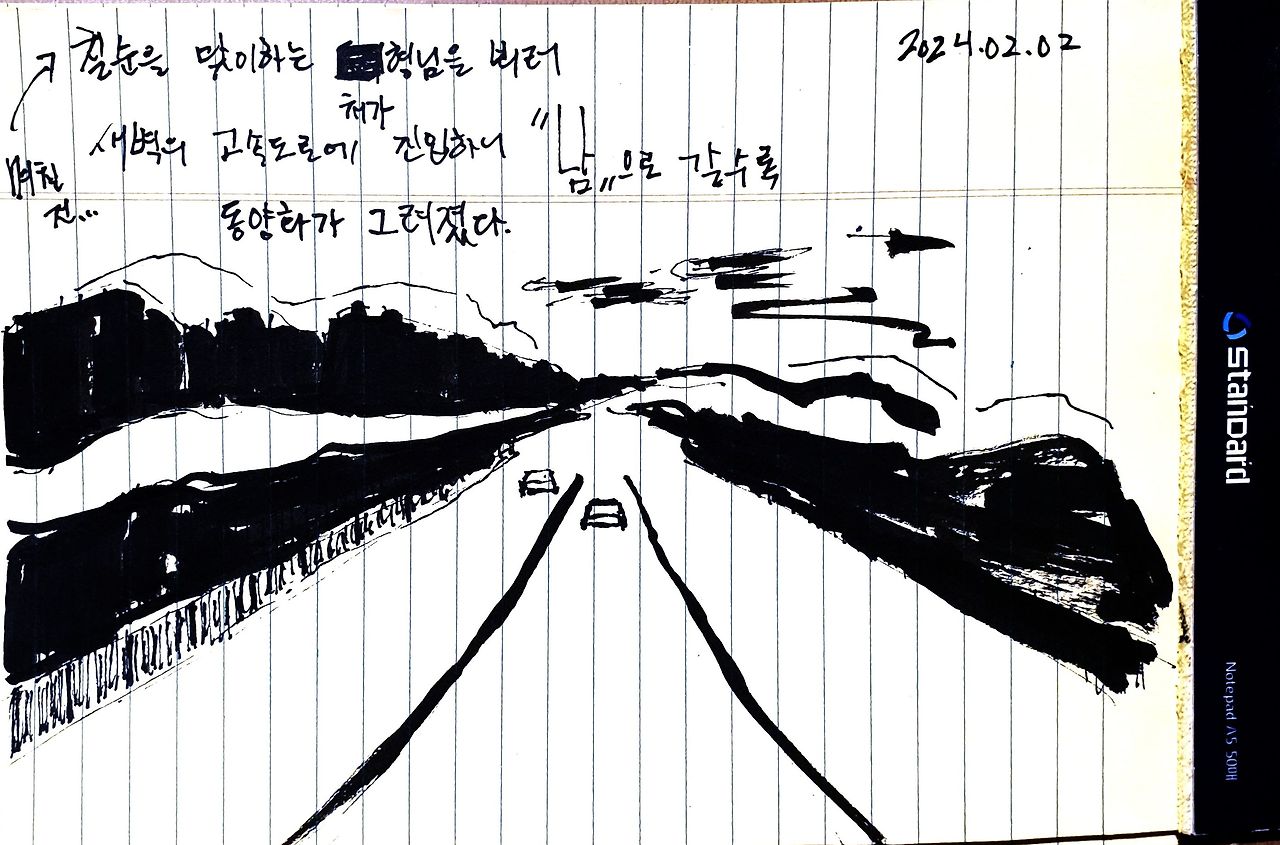 칠순을 맞이하는 형님을 뵈러
2024.02.02
처가
새벽의 고속도로에 진입하니 "남"으로 갈수록
며칠
전...
동양화가 그려졌다.
standard
Notepad A5 500H